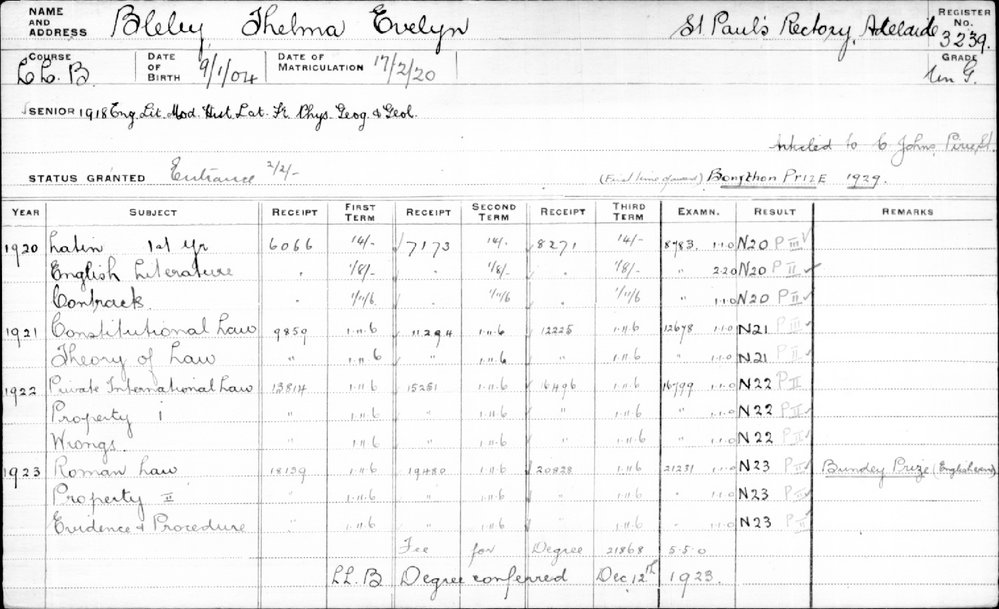 NAME AND ADDRESS Bleby, Thelma Evelyn St. Paul's Rectory, Adelaide REGISTER No. 3239.
COURSE LL.B. DATE OF BIRTH 9/1/04 DATE OF MATRICULATION 17/2/20 GRADE G.
SENIOR 1918 Eng. Lit. Mod. Hist. Lat. Fr. Phys. Geog. & Geol.
Articled to C Johns, Pirie St.
STATUS GRANTED Entrance 2/2/- (Final time of award) Bonython PRIZE 1929.
YEAR SUBJECT RECEIPT FIRST TERM RECEIPT SECOND TERM RECEIPT THIRD TERM EXAMN. RESULT REMARKS
1920 Latin 1st yr 6066 14/- 7173 14/- 8271 14/- 8783 1.1.0 N20 P III
English Literature " 1/8/- " 1/8/- " 1/8/- " 2.2.0 N20 P II
Contracts " 1/11/6 " 1/11/6 " 1/11/6 " 1.1.0 N20 P II
1921 Constitutional Law 9859 1.11.6 11294 1.11.6 12225 1.11.6 12678 1.1.0 N21 P III
Theory of Law " 1.11.6 " 1.11.6 " 1.11.6 " 1.1.0 N21 P II
1922 Private International Law 13814 1.11.6 15251 1.11.6 16496 1.11.6 16799 1.1.0 N22 P II
Property i " 1.11.6 " 1.11.6 " 1.11.6 " 1.1.0 N22 P II
Wrongs. " 1.11.6 " 1.11.6 " 1.11.6 " 1.1.0 N22 P II
1923 Roman Law 18139 1.11.6 19480 1.11.6 20828 1.11.6 21231 1.1.0 N23 P II Bundey Prize (English verse)
Property II " 1.11.6 " 1.11.6 " 1.11.6 " 1.1.0 N23 P II
Evidence & Procedure " 1.11.6 " 1.11.6 " 1.11.6 " 1.1.0 N23 P II
Fee for Degree 21868 5.5.0
LL.B Degree conferred Dec. 12th 1923.